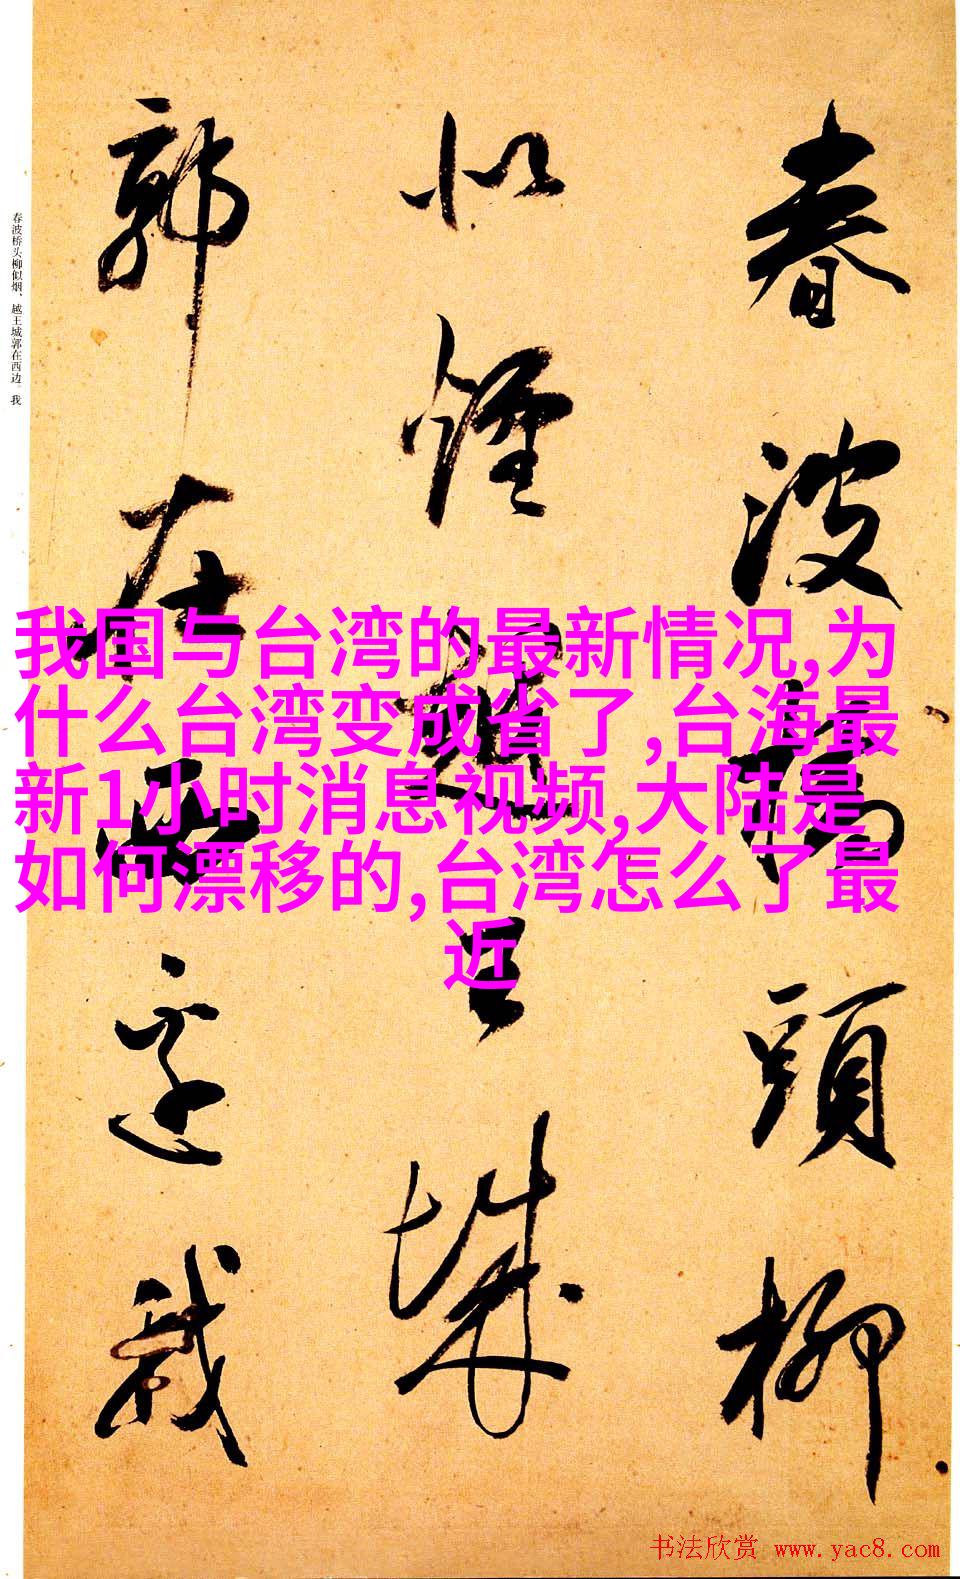 春波橋頭柳
似煙越王城
郭在西边我
春波桥头柳似烟、越王城郭在西边。我
我国与台湾的最新情况,为
什么台湾变成省了,台海最
新1小时消息视频,大陆是
如何漂移的,台湾怎么了最
近
书法欣赏 www.yac8.com